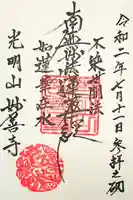 令和二年七月十一日参拝之砌
不染世間法
南無妙法蓮華経
如蓮華在水
光明山妙善寺